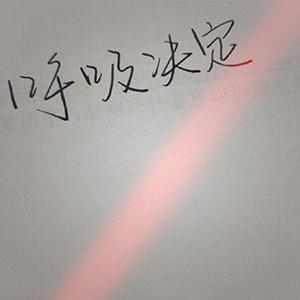 呼吸决定